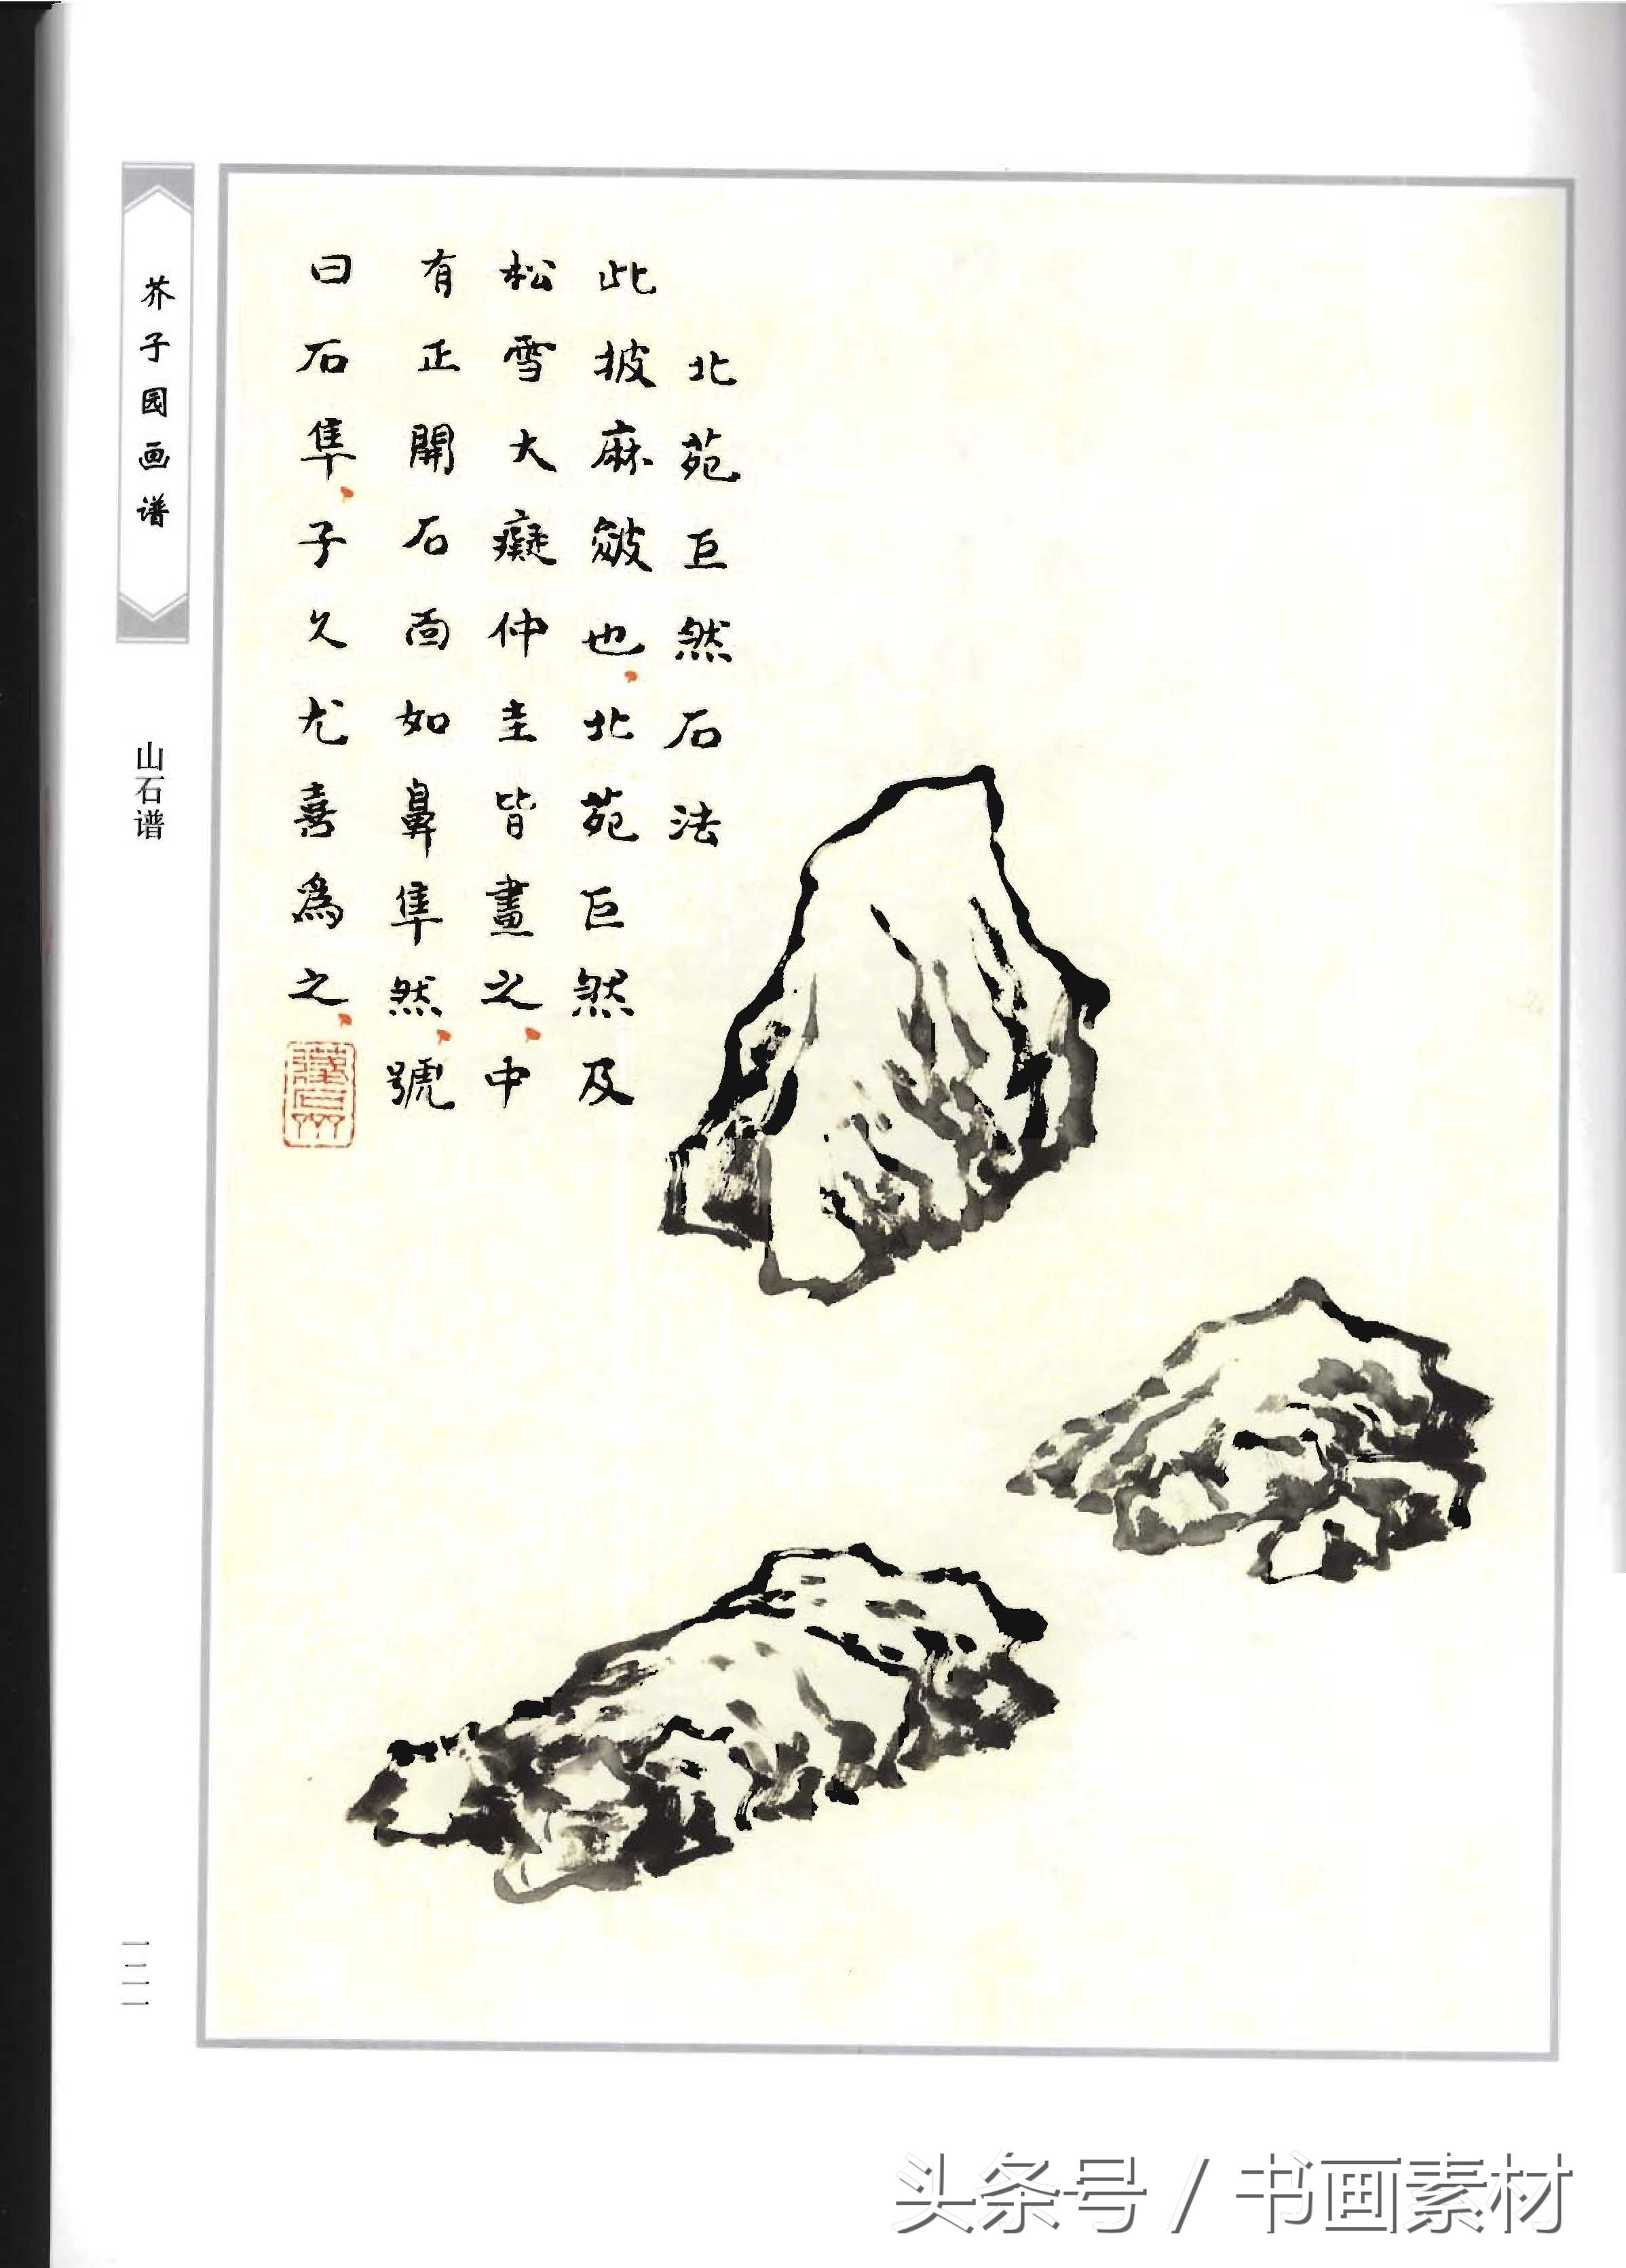 北苑巨然石法
此披麻皴也，北苑巨然及
松雪大癡仲圭皆畫之，中
有正開石面如鼻隼然，號
曰石隼，子久尤喜為之，
芥子园画谱
山石谱
一二一
头条号 / 书画素材